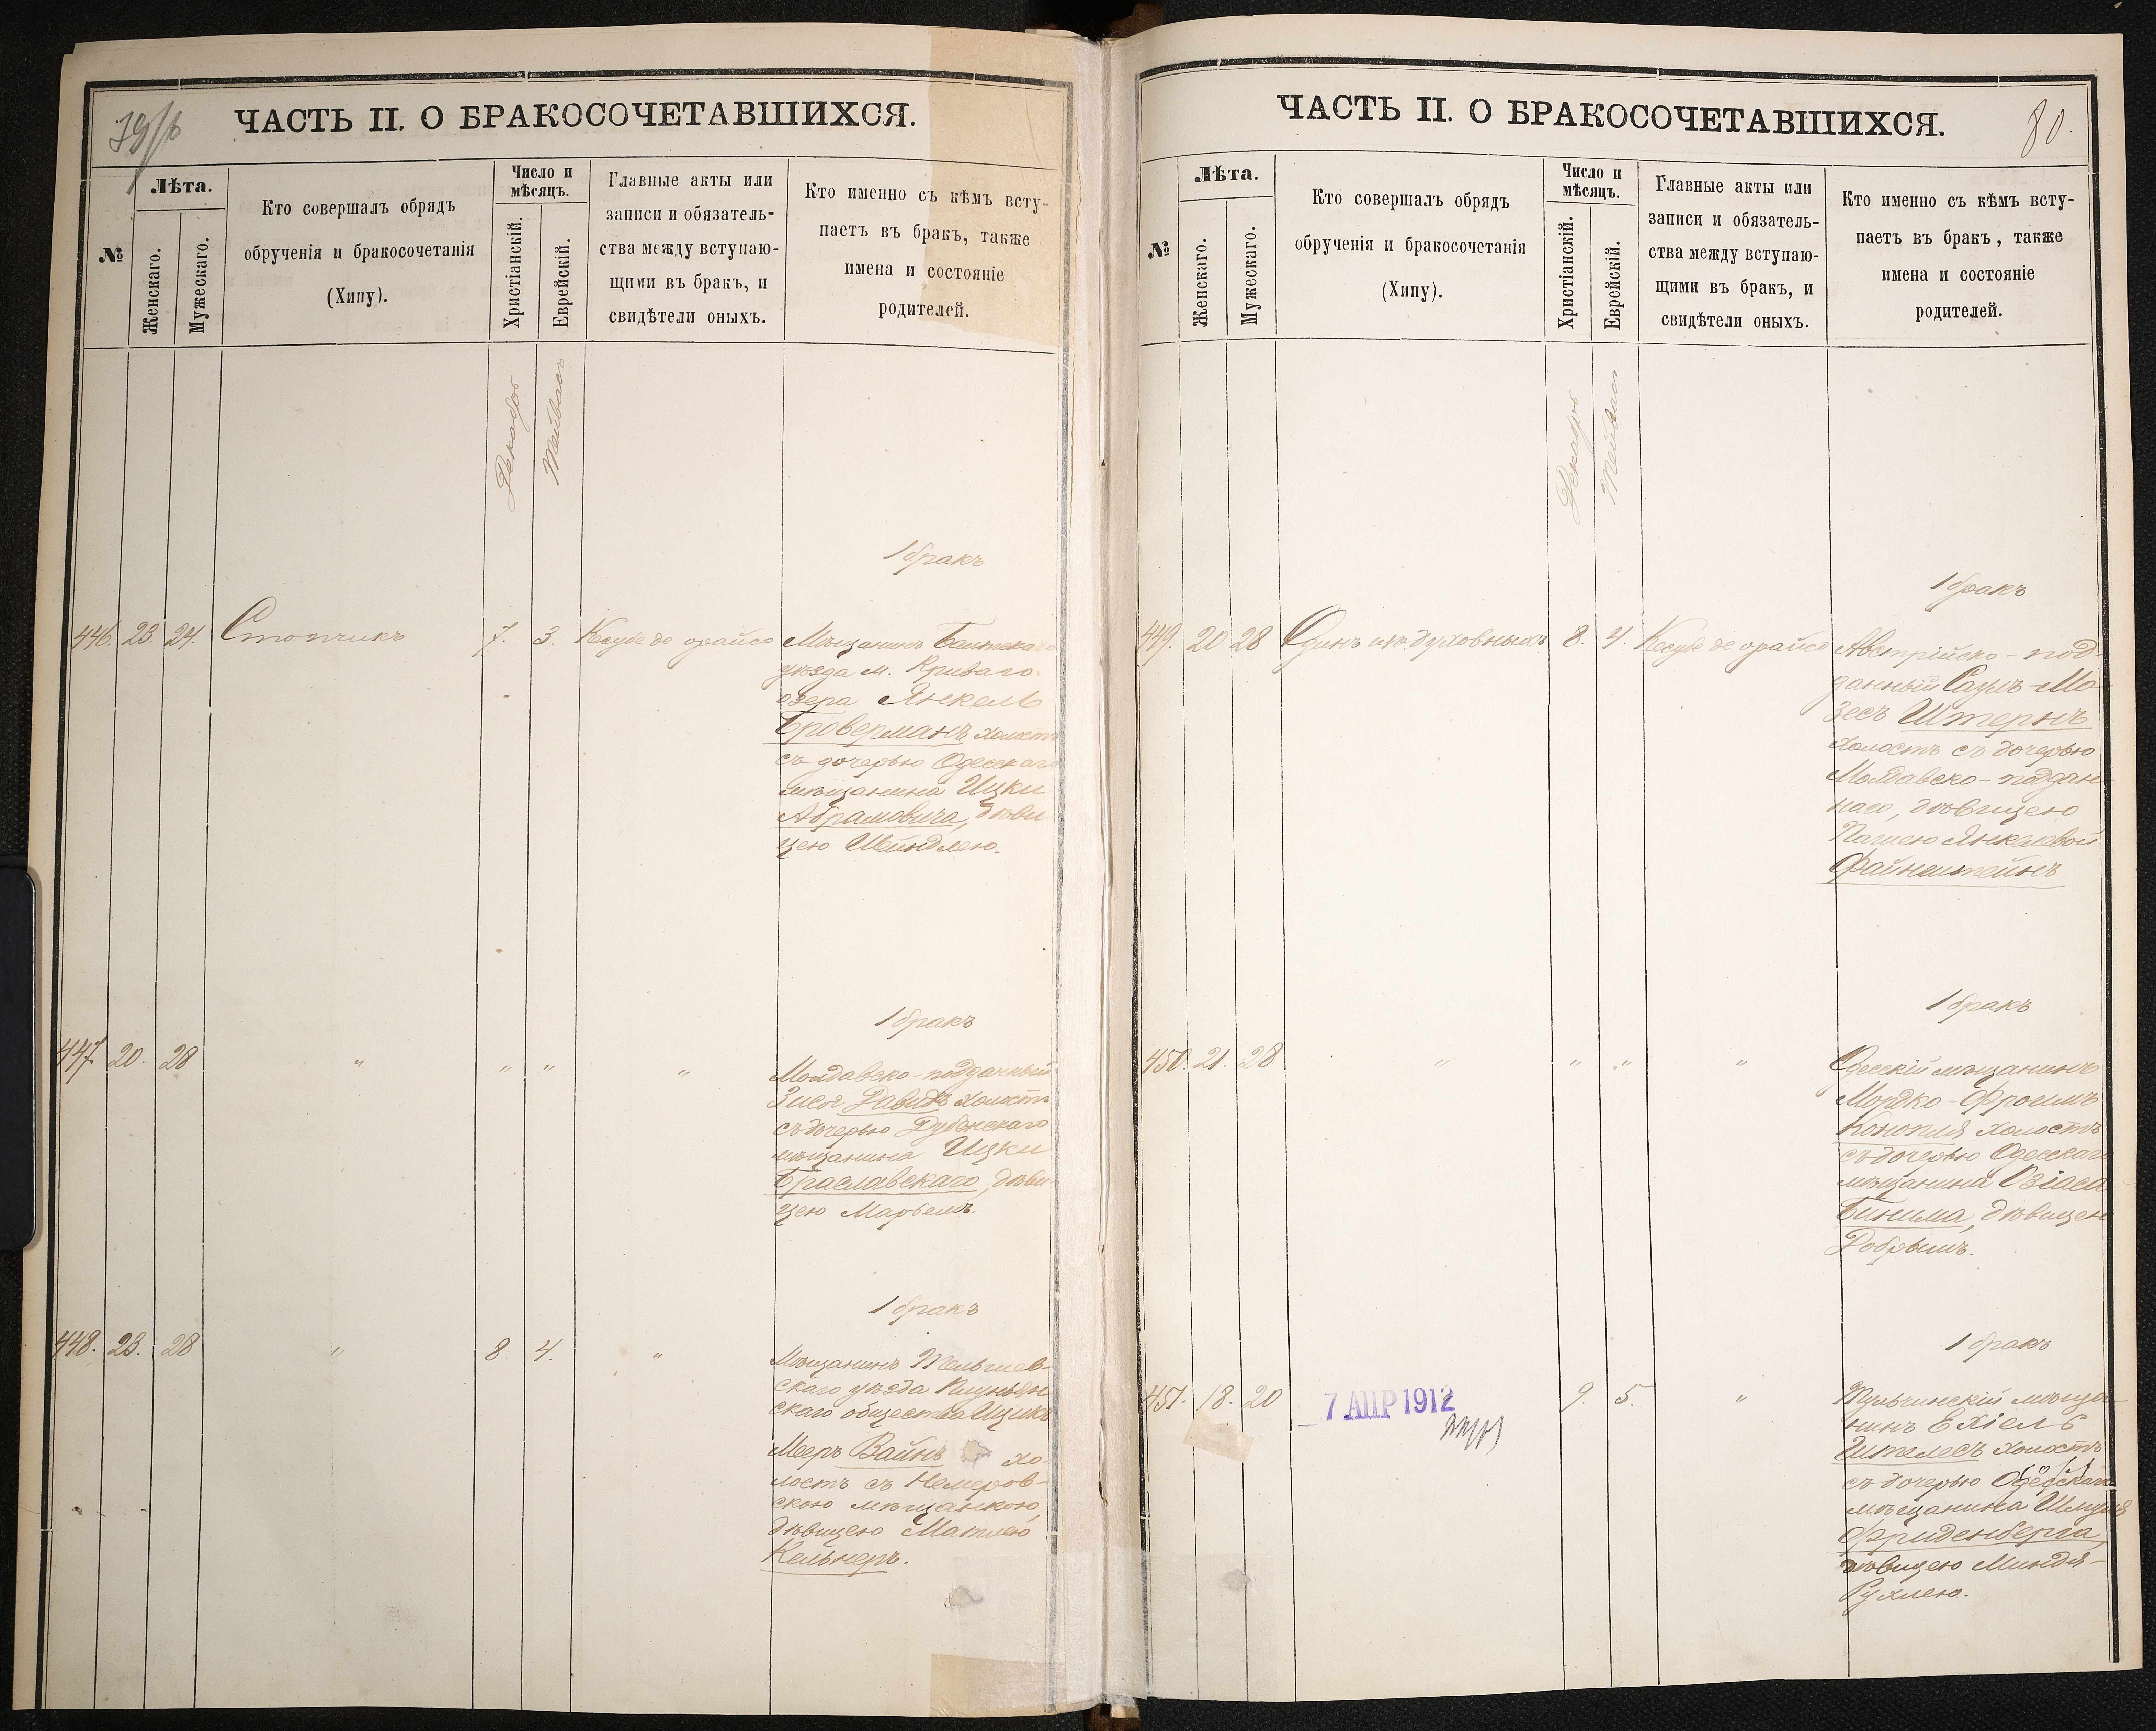 79/б
ЧАСТЬ II. О БРАКОСОЧЕТАВШИХСЯ.
№
Лѣта.
Женскаго.
Мужескаго.
Кто совершалъ обрядъ
обрученія и бракосочетанія
(Хипу).
Число и
мѣсяцъ.
Христіанскій.
Еврейскій.
Главные акты или
записи и обязатель-
ства между вступаю-
щими въ бракъ, и
свидѣтели оныхъ.
Кто именно съ кѣмъ всту-
паетъ въ бракъ, также
имена и состояніе
родителей.
Декабрь
Тейвас
1 бракъ
446. 23. 24. Стопчикъ 7. 3. Кесубе де орайсо Мѣщанинъ Балтска
уѣзда м. Криваго
озера Янкель
Броверманъ холостъ
съ дочерью Одесскаго
мѣщанина Ицки
Абрамовича, дѣви
цею Шейндлею.
1 бракъ
447. 20. 28 " " " " Молдавско-подданный
Зисъ Давидъ холостъ
съ дочерью Дубенскаго
мѣщанина Ицки
Браславскаго, дѣви
цею Марьемъ.
1 бракъ
448. 23. 28 " 8 4. " Мѣщанинъ Тельшев-
скаго уѣзда
скаго общества Ицикъ
Мееръ Вайнъ хо
лостъ съ Немеров-
скою мѣщанкою,
дѣвицею Матлею
Кельнеръ.
80.
ЧАСТЬ II. О БРАКОСОЧЕТАВШИХСЯ.
№
Лѣта.
Женскаго.
Мужескаго.
Кто совершалъ обрядъ
обрученія и бракосочетанія
(Хипу).
Число и
мѣсяцъ.
Христіанскій.
Еврейскій.
Главные акты или
записи и обязатель-
ства между вступаю-
щими въ бракъ, и
свидѣтели оныхъ.
Кто именно съ кѣмъ всту-
паетъ въ бракъ, также
имена и состояніе
родителей.
Декабрь
Тейвас
1 бракъ
449. 20 28 Одинъ изъ духовныхъ 8. 4. Кесубе де орайсо Австрійско-под-
данный Саулъ-Мо-
зесъ Штернъ
холостъ съ дочерью
Молдавско-поддан-
наго, дѣвицею
Песею Янкелевой
Файнштейнъ
1 бракъ
450. 21. 28 " " " " Одесскій мѣщанинъ
Мордко-Фроимъ
Конопля холостъ
съ дочерью Одесскаго
мѣщанина Озіаса
Бинима, дѣвицею
Добрышъ.
1 бракъ
451. 18. 20 9. 5. " Тульчинскій мѣща-
нинъ Ехіель
Штелесъ холостъ
съ дочерью Одесскаго
мѣщанина Шмуля
Фриденберга,
дѣвицею Миндя-
Рухлею.
7 АПР 1912